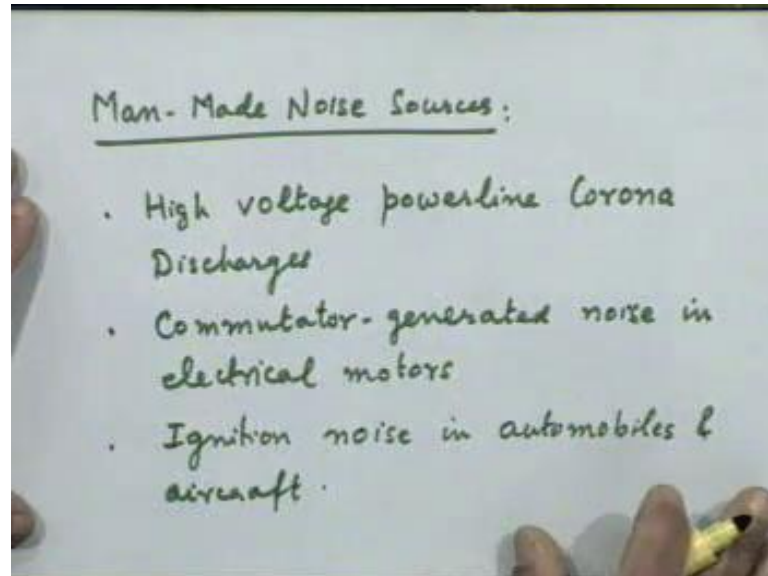 Man-Made Noise Sources:
. High voltage powerline Corona
Discharges
. Commutator-generated noise in
electrical motors
. Ignition noise in automobiles &
aircraft.